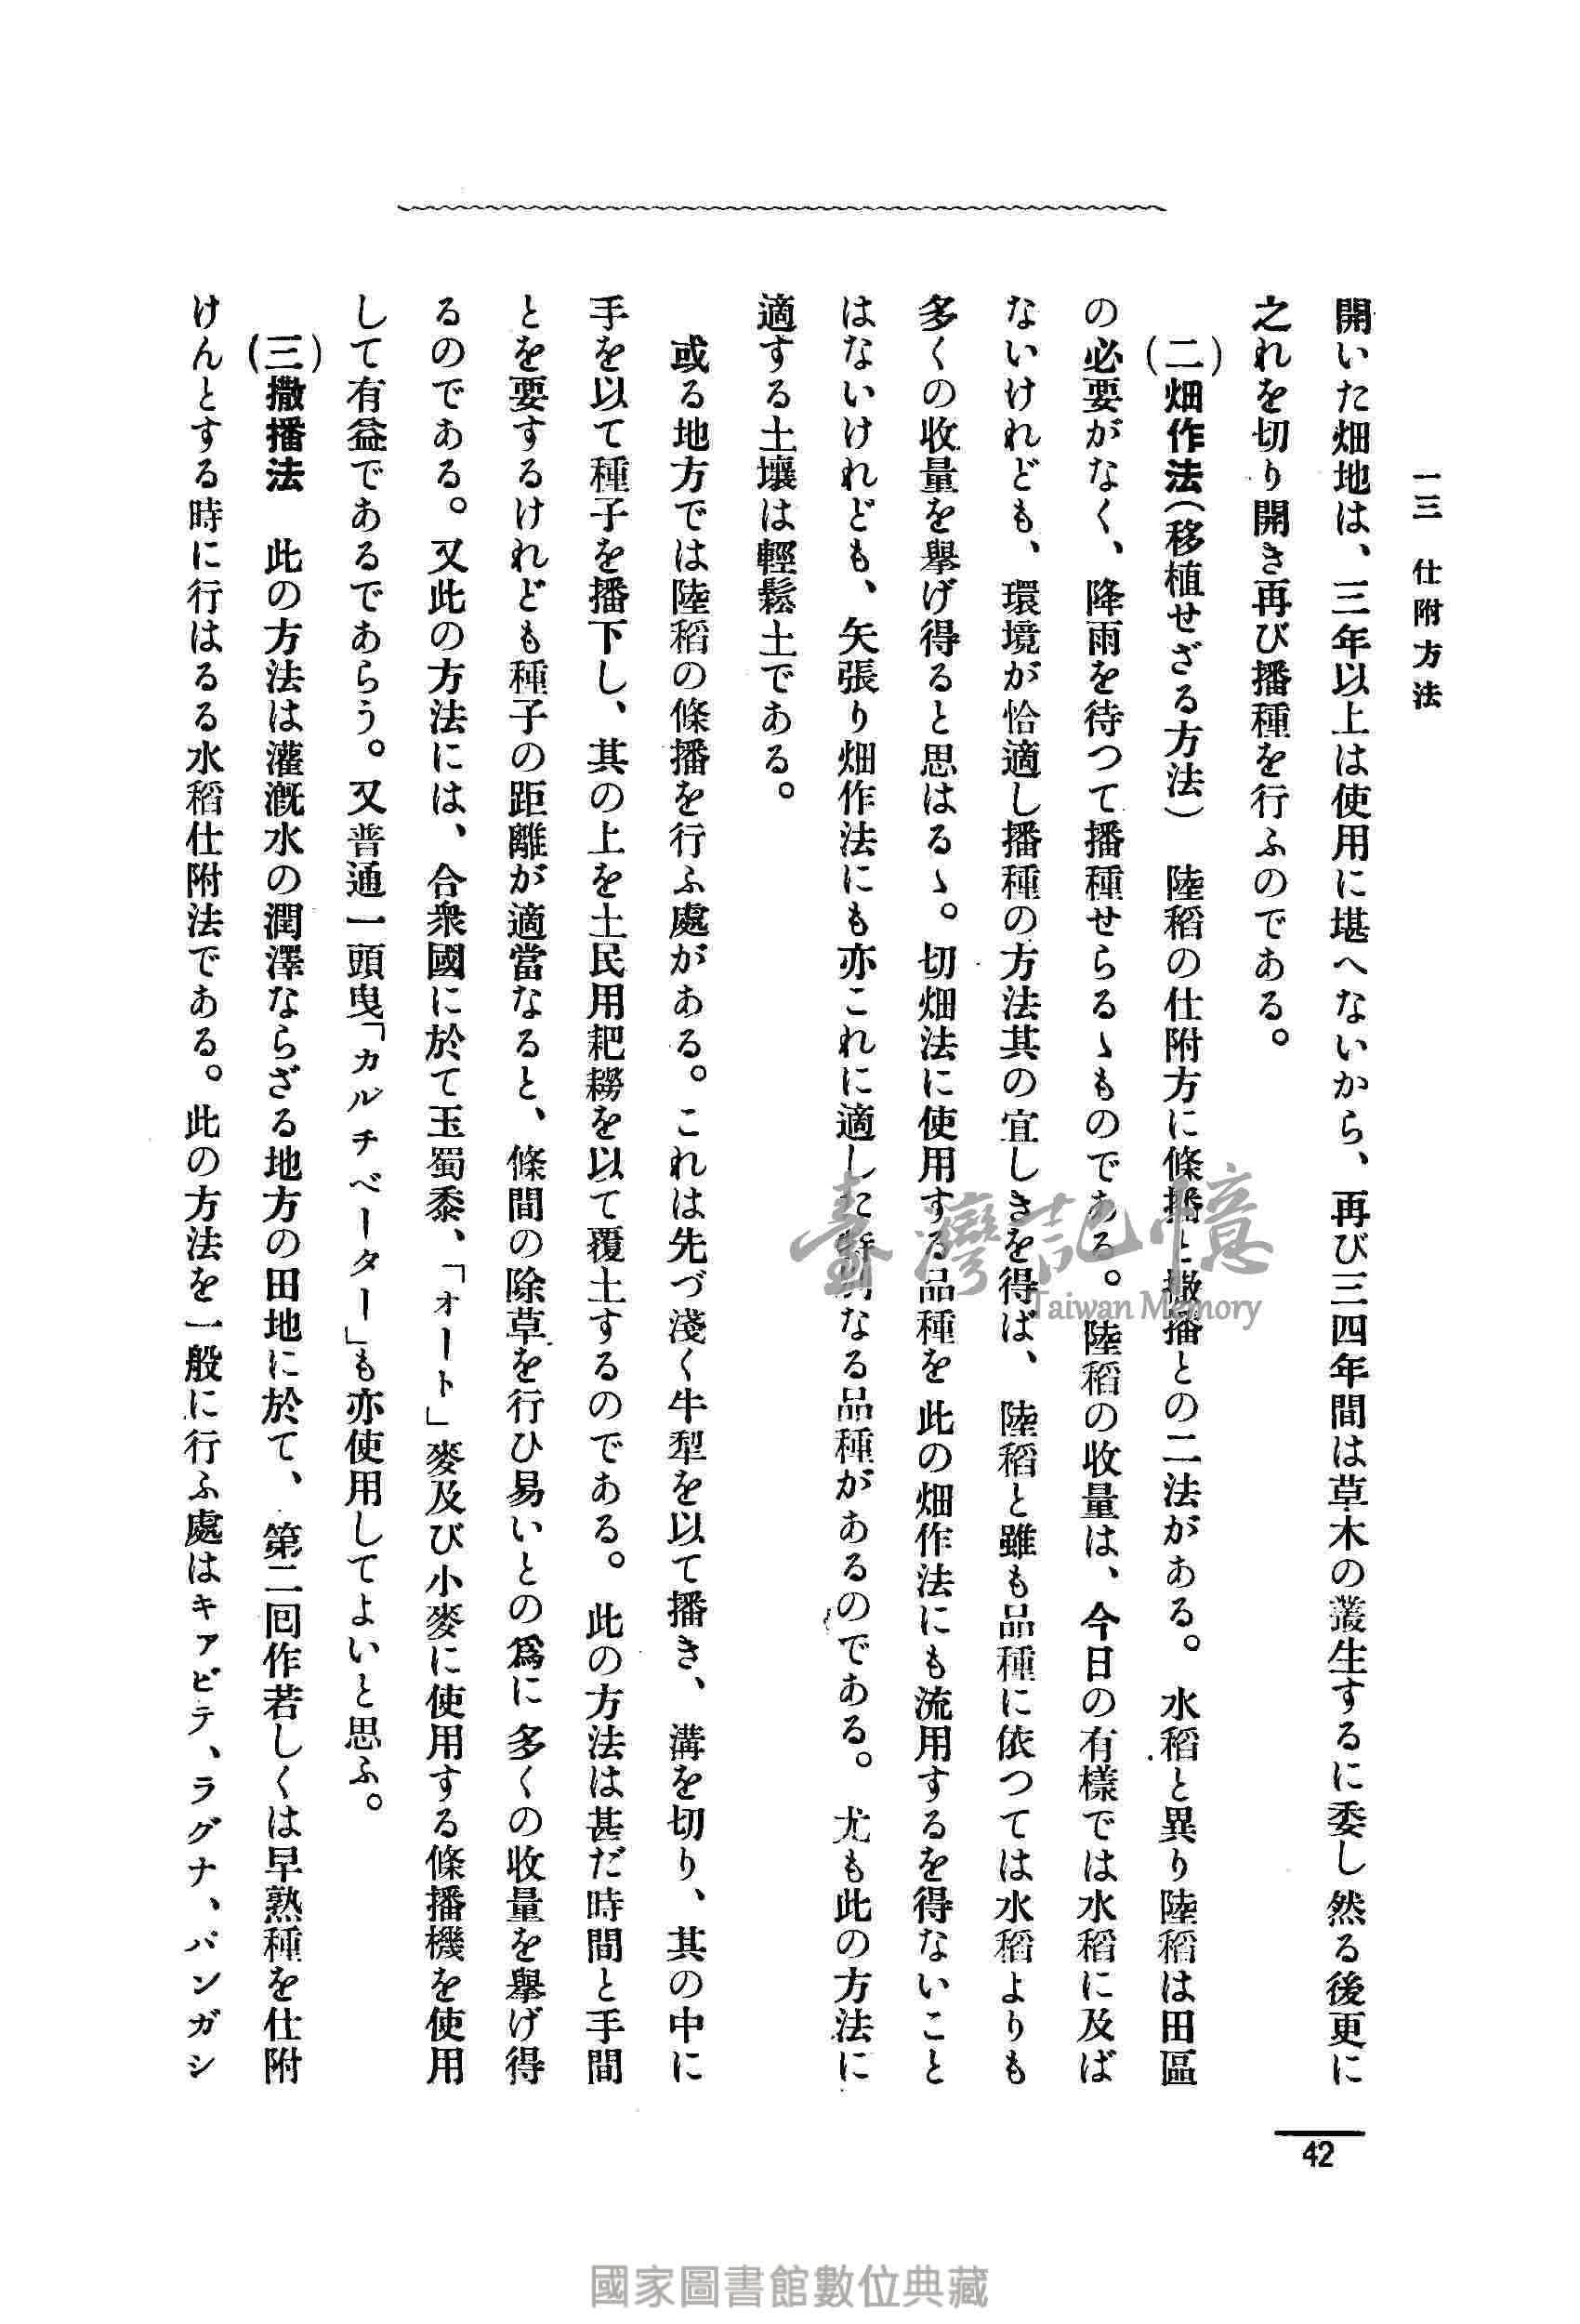 一三 仕附方法
開いた畑地は、三年以上は使用に堪へないから、再び三四年間は草木の叢生するに委し然る後更に
之れを切り開き再び播種を行ふのである。
(二)畑作法(移植せざる方法) 陸稻の仕附方に條播と撒播との二法がある。水稻と異り陸稻は田區
の必要がなく、降雨を待つて播種せらるゝものである。陸稻の收量は、今日の有樣では水稻に及ば
ないけれども、環境が恰適し播種の方法其の宜しきを得ば、陸稻と雖も品種に依つては水稻よりも
多くの收量を擧げ得ると思はるゝ。切畑法に使用する品種を此の畑作法にも流用するを得ないこと
はないけれども、矢張り畑作法にも亦これに適した特別なる品種があるのである。尤も此の方法に
適する土壤は輕鬆土である。
或る地方では陸稻の條播を行ふ處がある。これは先づ淺く牛犁を以て播き、溝を切り、其の中に
手を以て種子を播下し、其の上を土民用耙耮を以て覆土するのである。此の方法は甚だ時間と手間
とを要するけれども種子の距離が適當なると、條間の除草を行ひ易いとの爲に多くの收量を擧げ得
るのである。又此の方法には、合衆國に於て玉蜀黍、「オート」麥及び小麥に使用する條播機を使用
して有益であるであらう。又普通一頭曳「カルチベーター」も亦使用してよいと思ふ。
(三)撒播法 此の方法は灌漑水の潤澤ならざる地方の田地に於て、第二囘作若しくは早熟種を仕附
けんとする時に行はるる水稻仕附法である。此の方法を一般に行ふ處はキアビテ、ラグナ、バンガシ
42
臺灣記憶
Taiwan Memory
國家圖書館數位典藏